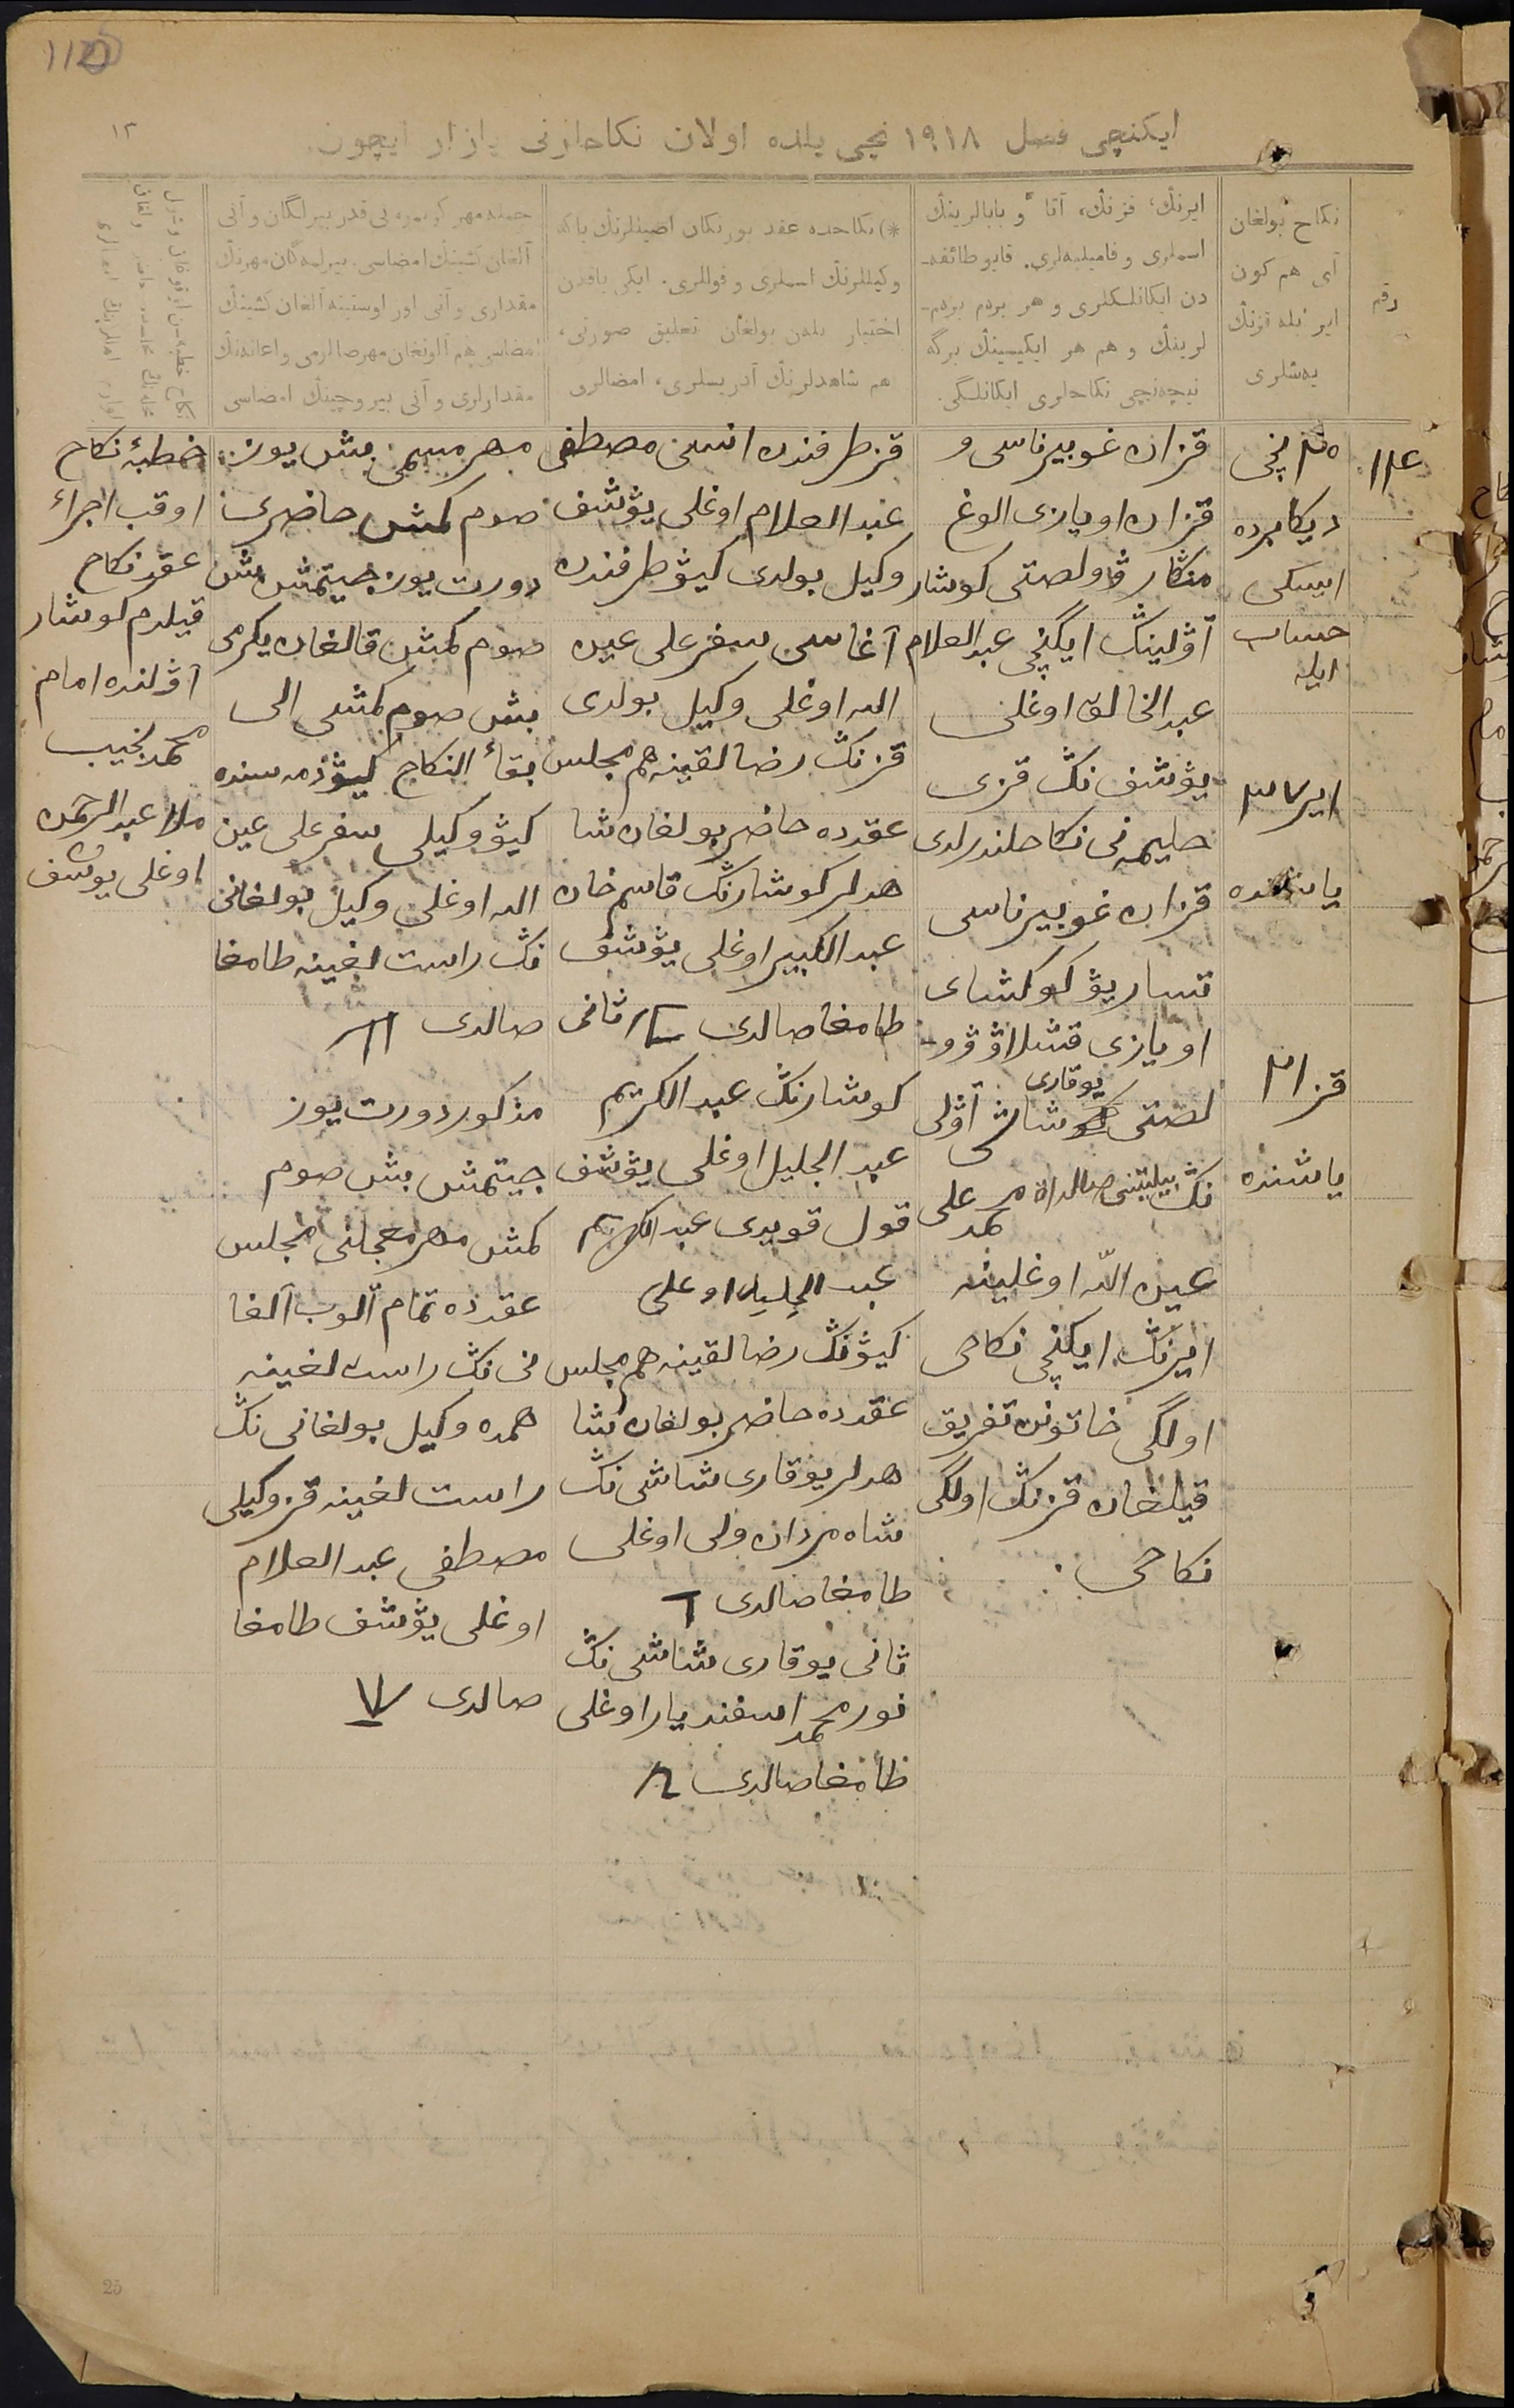 1120
ایكنچی فصل ١٩١٨ نچی یلده اولان نكاحلرنی یازار ایچون.
١٢
رقم
نكاح بولغان
آی هم كون
ایر بله قزنڭ
یەشلری
ایرنڭ، قزنڭ، آتا و بابالرینڭ
اسملری و فامیلیەلری. قایو طائفه‌
دن ایكانلكلری و هر بردم بردم‌
لرینڭ و هم هر ایكیسینڭ برگه
نیچەنچی نكاحلری ایكانلگی.
*) نكاحده عقد یورتكان اصیللرنڭ یاكه
وكیللرنڭ اسملری و قوللری. ایكی یاقدن
اختیار بلەن بولغان تعلیق صورتی،
هم شاهدلرنڭ آدریسلری، امضالری
جمله مهر كوبمه نی قدر بیرلگان و آنی
آلغان كشینڭ امضاسی. بیرلمەگان مهرنڭ
مقداری و آنی اور اوستینه آلغان كشینڭ
امضاسی هم آلونغان مهر صالرمی و اعانەنڭ
مقدارلری و آنی بیروچینڭ امضاسی
١١٤
نچی
دیكابرده
ایسكی
حساب
ایله
ایر
یاشنده
قز
یاشنده
قزان غوبیرناسی و
قزان اویازی الوغ
منگار ڤولصتی كوشار
آۋلینڭ ایكنچی عبدالعلام
عبدالخالق اوغلی
یۋشف نڭ قزی
حلیمه نی نكاحلندرلدی
قزان غوبیرناسی
تساریۋ كوكشای
اویازی قشلاۋ ۋو‌
یوقاری
لصتی شاش آۋلی
نڭ بیلیتنی صالدان محمد علی
عین اللّه اوغلینه
ایرنڭ ایكنچی نكاحی
اولگی خاتونن تفریق
قیلغان قزنڭ اولگی
نكاحی.
قز طرفندن انسی مصطفی
عبدالعلام اوغلی یۋشف
وكیل بولدی كیۋ طرفندن
آغاسی سفر علی عین
الله اوغلی وكیل بولدی
قزنڭ رضالقینه هم مجلس
عقدده حاضر بولغان شا
هدلر كوشارنڭ قاسم خان
عبدالكبیر اوغلی یۋشف
طامغا صالدی ثانی
كوشارنڭ عبدالكریم
عبدالجلیل اوغلی یۋشف
قول قویدی عبدالكریم
عبد الجلیل اوغلی
كیۋنڭ رضالقینه هم مجلس
عقدده حاضر بولغان شا
هدلر یوقاری شاشی نڭ
شاه مردان ولی اوغلی
طامغا صالدی
ثانی یوقاری شاشی نڭ
نورمحمد اسفندیار اوغلی
طامغا صالدی
مهر مسمی بش یوز
صوم كمش حاضری
دورت یوز جیتمش بش
صوم كمش قالغان یكرمی
بش صوم كمشی الی
بقاء النكاح كیۋ ذمه سنده
كیۋ وكیلی سفر علی عین
الله اوغلی وكیل بولغانی
نڭ راست لغینه طامغا
صالدی
مذكور دورت یوز
جیتمش بش صوم
كمش مهر معجلنی مجلس
عقدده تمام آلوب آلغا
نی نڭ راست لغینه
همده وكیل بولغانی نڭ
راست لغینه قز وكیلی
مصطفی عبدالعلام
اوغلی یۋشف طامغا
صالدی
خطبهٔ نكاح
اوقب اجراء
عقد نكاح
قیلدم كوشار
آۋلنده امام
محمد نجیب
ملا عبدالرحمن
اوغلی یوشف
25